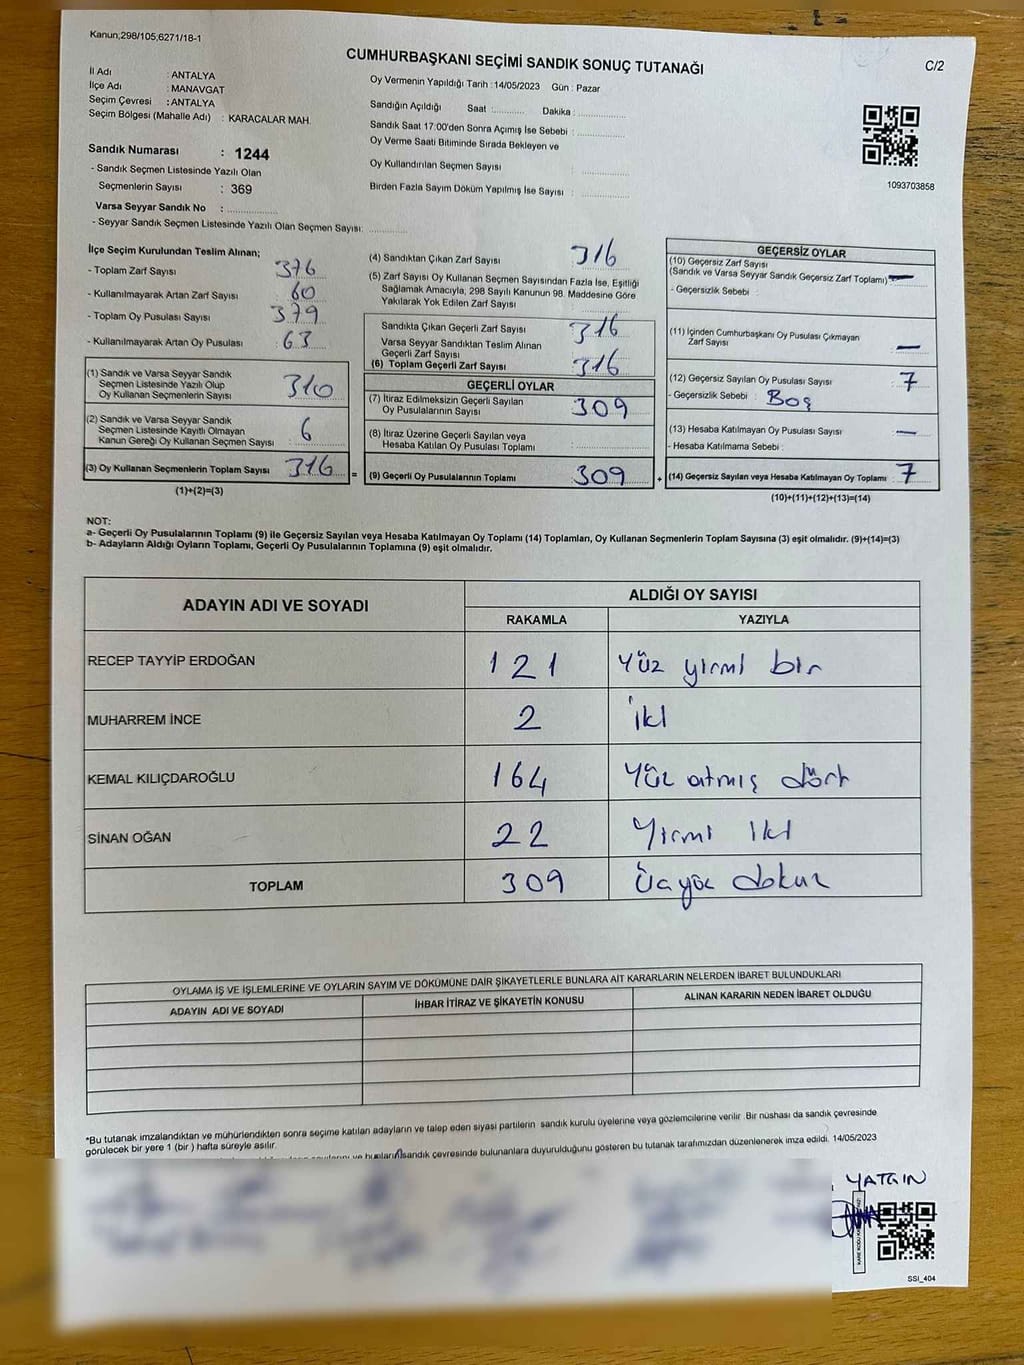 Kanun,298/105,6271/18-1
CUMHURBAŞKANI SEÇİMİ SANDIK SONUÇ TUTANAĞI
C/2
İl Adı : ANTALYA
İlçe Adı : MANAVGAT
Seçim Çevresi : ANTALYA
Seçim Bölgesi (Mahalle Adı) : KARACALAR MAH.
Sandık Numarası : 1244
- Sandık Seçmen Listesinde Yazılı Olan
Seçmenlerin Sayısı : 369
Varsa Seyyar Sandık No :
- Seyyar Sandık Seçmen Listesinde Yazılı Olan Seçmen Sayısı:
Oy Vermenin Yapıldığı Tarih : 14/05/2023 Gün : Pazar
Sandığın Açıldığı Saat : Dakika :
Sandık Saat 17:00'den Sonra Açımış İse Sebebi :
Oy Verme Saati Bitiminde Sırada Bekleyen ve
Oy Kullandırılan Seçmen Sayısı :
Birden Fazla Sayım Döküm Yapılmış İse Sayısı :
1093703858
İlçe Seçim Kurulundan Teslim Alınan;
- Toplam Zarf Sayısı : 376
- Kullanılmayarak Artan Zarf Sayısı : 60
- Toplam Oy Pusulası Sayısı : 379
- Kullanılmayarak Artan Oy Pusulası : 63
(1) Sandık ve Varsa Seyyar Sandık
Seçmen Listesinde Yazılı Olup
Oy Kullanan Seçmenlerin Sayısı : 310
(2) Sandık ve Varsa Seyyar Sandık
Seçmen Listesinde Kayıtlı Olmayan
Kanun Gereği Oy Kullanan Seçmen Sayısı : 6
(3) Oy Kullanan Seçmenlerin Toplam Sayısı : 316 =
(1)+(2)=(3)
(4) Sandıktan Çıkan Zarf Sayısı : 316
(5) Zarf Sayısı Oy Kullanan Seçmen Sayısından Fazla İse, Eşitliği
Sağlamak Amacıyla, 298 Sayılı Kanunun 98. Maddesine Göre
Yakılarak Yok Edilen Zarf Sayısı :
Sandıkta Çıkan Geçerli Zarf Sayısı : 316
Varsa Seyyar Sandıktan Teslim Alınan
Geçerli Zarf Sayısı :
(6) Toplam Geçerli Zarf Sayısı : 316
GEÇERLİ OYLAR
(7) İtiraz Edilmeksizin Geçerli Sayılan
Oy Pusulalarının Sayısı : 309
(8) İtiraz Üzerine Geçerli Sayılan veya
Hesaba Katılan Oy Pusulası Toplamı :
(9) Geçerli Oy Pusulalarının Toplamı : 309 +
GEÇERSİZ OYLAR
(10) Geçersiz Zarf Sayısı
(Sandık ve Varsa Seyyar Sandık Geçersiz Zarf Toplamı) : —
- Geçersizlik Sebebi :
(11) İçinden Cumhurbaşkanı Oy Pusulası Çıkmayan
Zarf Sayısı : —
(12) Geçersiz Sayılan Oy Pusulası Sayısı : 7
- Geçersizlik Sebebi : Boş
(13) Hesaba Katılmayan Oy Pusulası Sayısı : —
- Hesaba Katılmama Sebebi :
(14) Geçersiz Sayılan veya Hesaba Katılmayan Oy Toplamı : 7
(10)+(11)+(12)+(13)=(14)
NOT:
a- Geçerli Oy Pusulalarının Toplamı (9) ile Geçersiz Sayılan veya Hesaba Katılmayan Oy Toplamı (14) Toplamları, Oy Kullanan Seçmenlerin Toplam Sayısına (3) eşit olmalıdır. (9)+(14)=(3)
b- Adayların Aldığı Oyların Toplamı, Geçerli Oy Pusulalarının Toplamına (9) eşit olmalıdır.
ADAYIN ADI VE SOYADI ALDIĞI OY SAYISI
RAKAMLA YAZIYLA
RECEP TAYYİP ERDOĞAN 121 Yüz yirmi bir
MUHARREM İNCE 2 iki
KEMAL KILIÇDAROĞLU 164 Yüz atmış dört
SİNAN OĞAN 22 Yirmi iki
TOPLAM 309 Üçyüz dokuz
OYLAMA İŞ VE İŞLEMLERİNE VE OYLARIN SAYIM VE DÖKÜMÜNE DAİR ŞİKAYETLERLE BUNLARA AİT KARARLARIN NELERDEN İBARET BULUNDUKLARI
ADAYIN ADI VE SOYADI İHBAR İTİRAZ VE ŞİKAYETİN KONUSU ALINAN KARARIN NEDEN İBARET OLDUĞU
*Bu tutanak imzalandıktan ve mühürlendikten sonra seçime katılan adayların ve talep eden siyasi partilerin sandık kurulu üyelerine veya gözlemcilerine verilir .Bir nüshası da sandık çevresinde
görülecek bir yere 1 (bir ) hafta süreyle asılır.
sandık çevresinde bulunanlara duyurulduğunu gösteren bu tutanak tarafımızdan düzenlenerek imza edildi. 14/05/2023
YATGIN
SSI_404